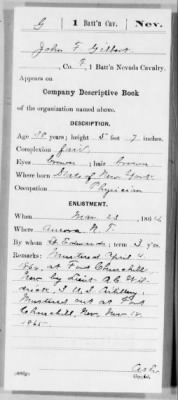 G 1 Batt'n Cav. Nev.
John F. Gilbert
, Co. F, 1 Batt'n Nevada Cavalry.
Appears on
Company Descriptive Book
of the organization named above.
DESCRIPTION.
Age years; height 5 feet 7 inches.
Complexion fair
Eyes brown; hair brown
Where born State of New York
Occupation Physician
ENLISTMENT.
When 23, 186
Where Aurora N.T.
By whom Lt. Edwards; term 3 y'rs.
Remarks: Mustered April 4
at Fort Churchill
Nev. by Lieut.
3 U.S. Artillery.
Mustered out at Fort
Churchill, Nev. Nov 18,
1865.
Copyist.